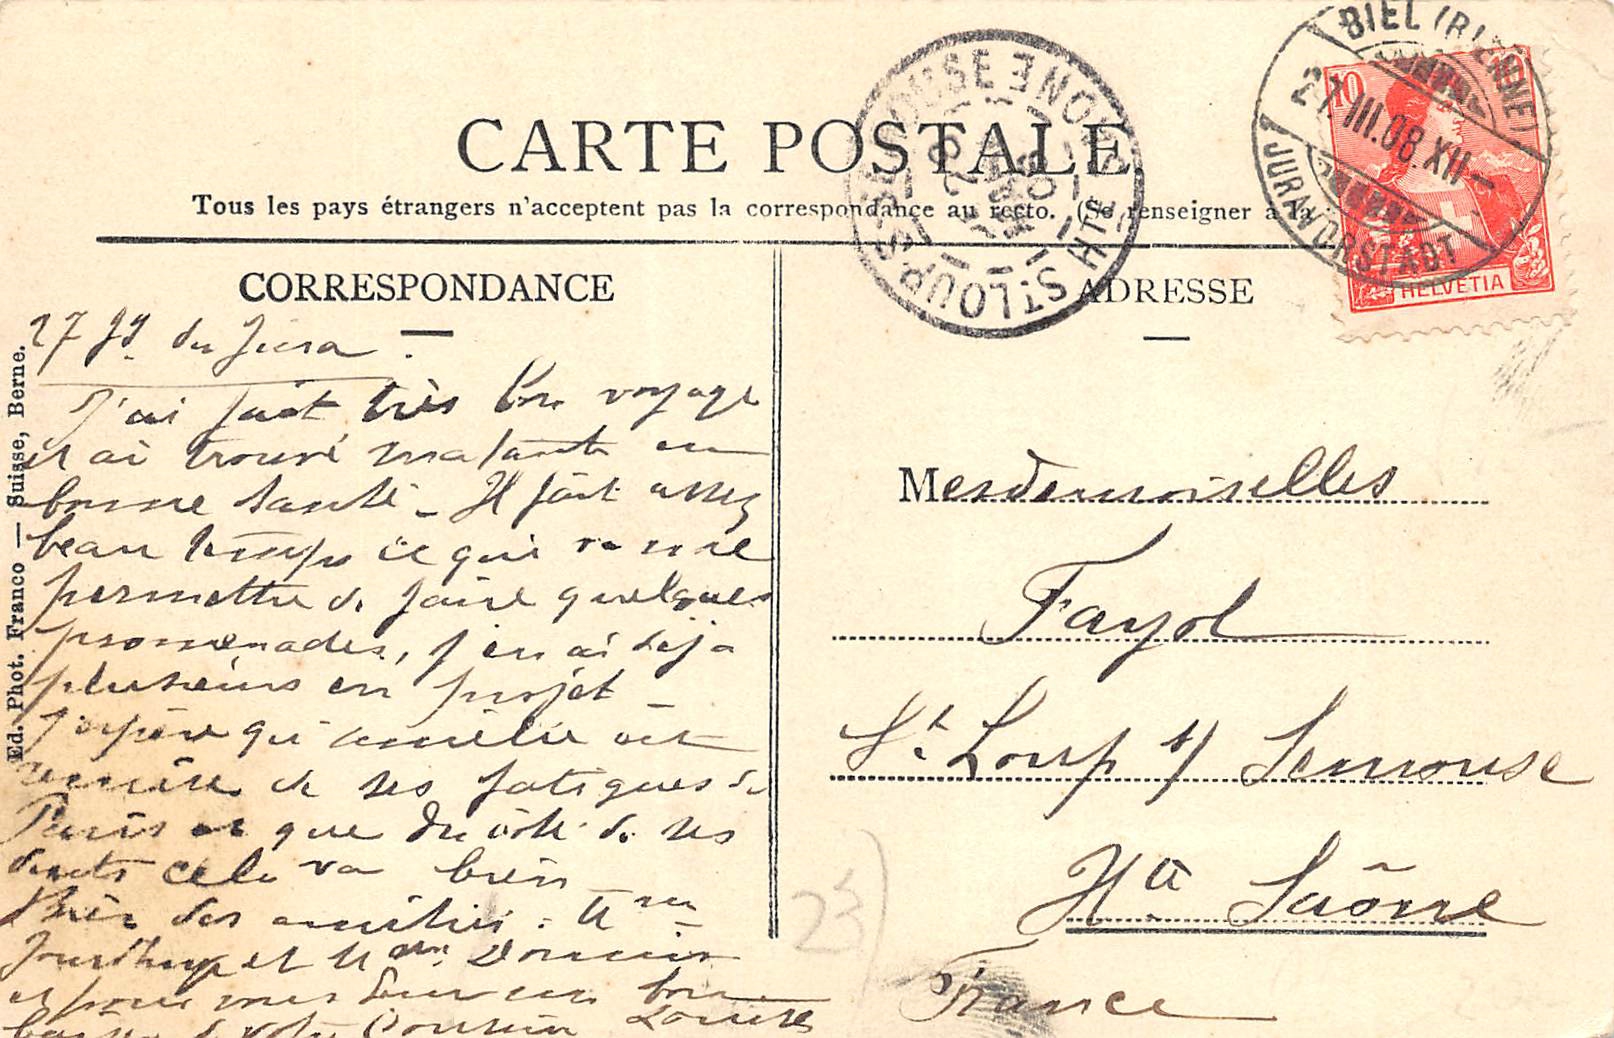 CARTE POSTALE
Tous les pays étrangers n'acceptent pas la correspondance au recto. (Se renseigner à la
CORRESPONDANCE
ADRESSE
27 du Jura
J'ai fait très bon voyage
et ai trouvé ma tante en
bonne santé - Il fait assez
beau temps ce qui va me
permettre de faire quelques
promenades, j'en ai déjà
plusieurs en projet -
J'espère qu'Amélie est
remise de ses fatigues de
Paris et que du côté de ses
dents cela va bien
des amitiés
et
et pour vous deux un bon
baiser de votre Cousin
Mesdemoiselles
Fayol
St. Loup s/ Semouse
Hte Saône
France
Ed. Phot. Franco — Suisse, Berne.
BIEL (BIENNE)
27.III.08.XII–
JURAVORSTADT
10 10
HELVETIA
ST LOUP-S-SEMOUSE
HTE SAONE
08
23